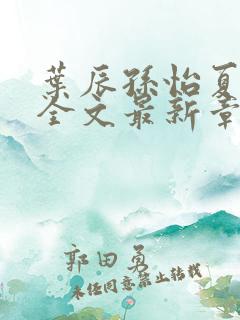 葉辰孫怡夏
全文最新章
郭田勇
未任同意禁止转载